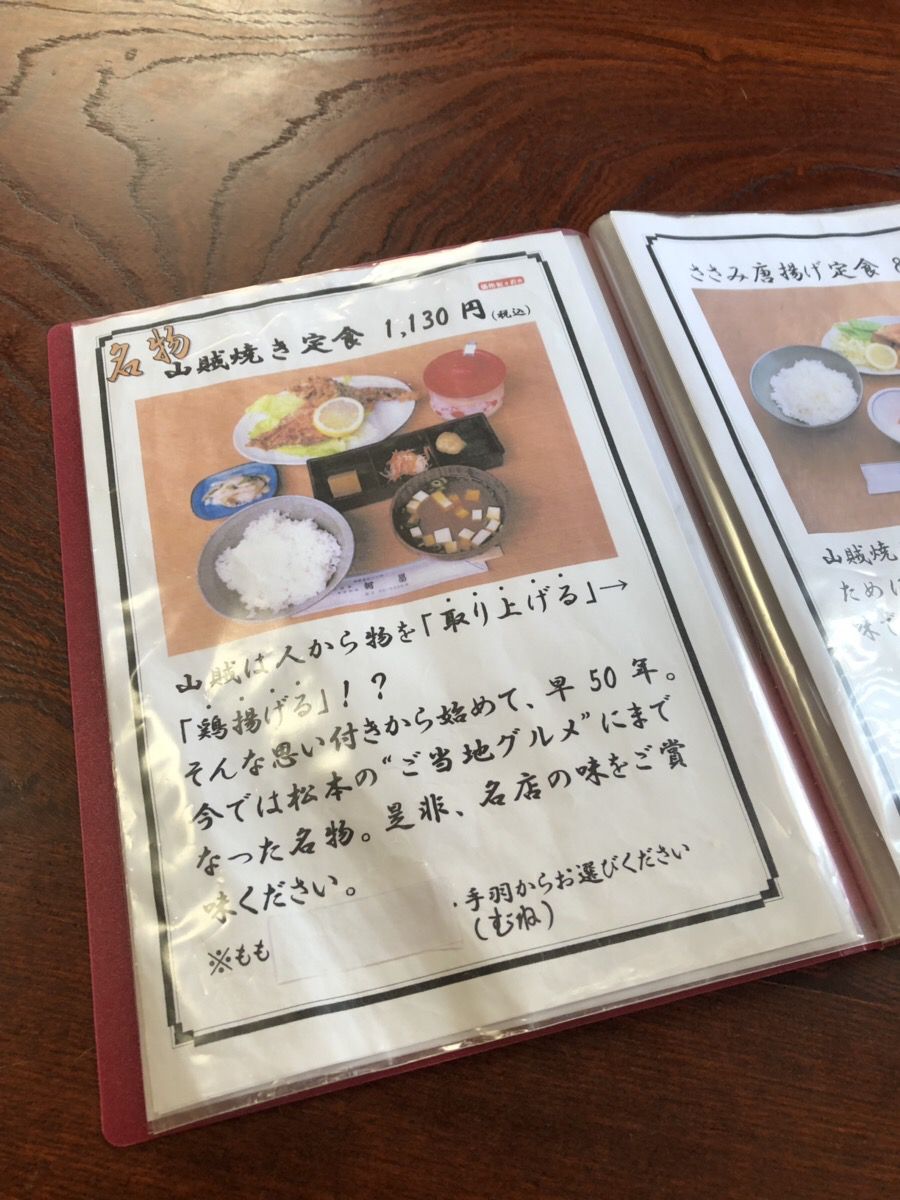 名物 山賊焼き定食 1,130円(税込)
山賊は人から物を「取り上げる」→
「鶏揚げる」!?
そんな思い付きから始めて、早50年。
今では松本の“ご当地グルメ”にまで
なった名物。是非、名店の味をご賞
味ください。
※もも ・手羽からお選びください
(むね)
ささみ唐揚げ定食 8
山賊焼
ために
味で